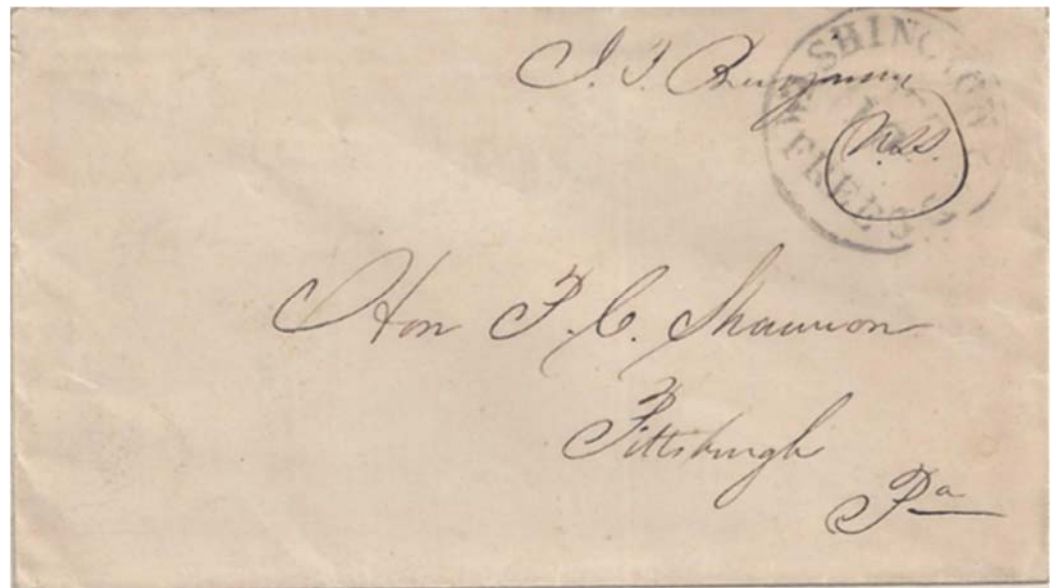 J. F. Benjamin
WASHINGTON
FREE
Hon P. C. Shannon
Pittsburgh
Pa